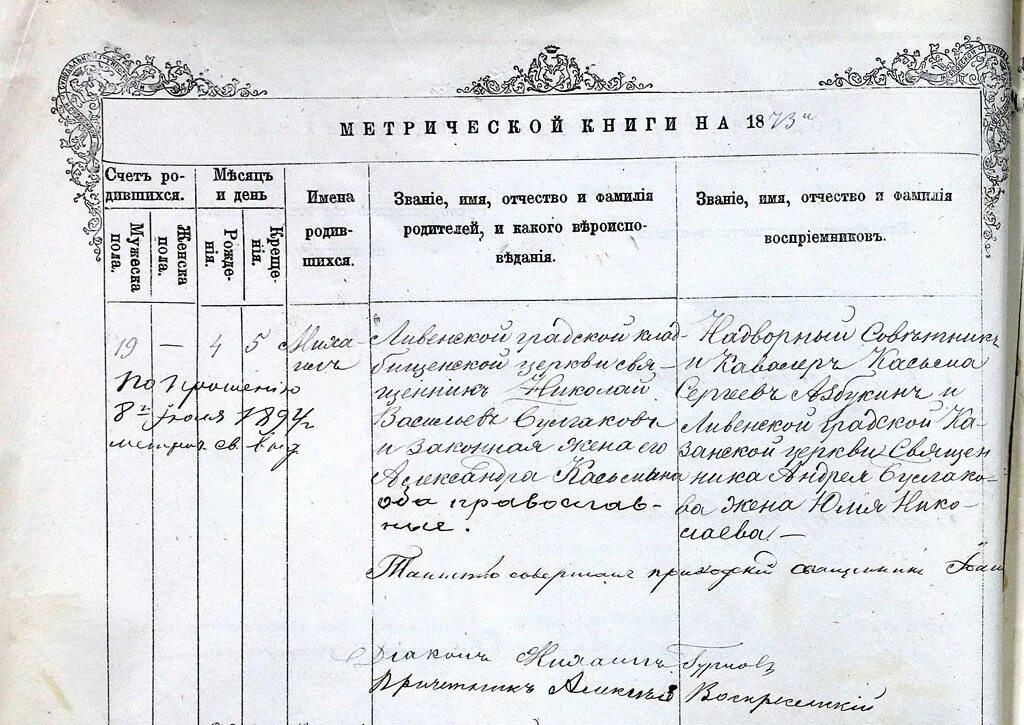 МЕТРИЧЕСКОЙ КНИГИ НА 1873й
Счетъ ро-
дившихся.
Мужеска
пола.
Женска
пола.
Мѣсяцъ
и день
Рожде-
нія.
Креще-
нія.
Имена
родив-
шихся.
Званіе, имя, отчество и фамилія
родителей, и какого вѣроиспо-
вѣданія.
Званіе, имя, отчество и фамилія
воспріемниковъ.
19 — 4 5
Миха-
илъ
По прошенію
8го Іюля 1894г
метрич св выд
Ливенской градской клад-
бищенской церкви свя-
щенникъ Николай
Васильевъ Булгаковъ
и законная жена его
Александра Касьмина
оба православ-
ные.
Надворный Совѣтникъ
и Кавалеръ Касьма
Сергеевъ Азбукинъ и
Ливенской градской Ка-
занской церкви Священ
ника Андрея Булгако-
ва жена Юлія Нико-
лаева —
Таинство совершалъ приходскій священникъ Іоан
Діаконъ Михаилъ Гурьовъ
Причетникъ Алексѣй Воскресенскій